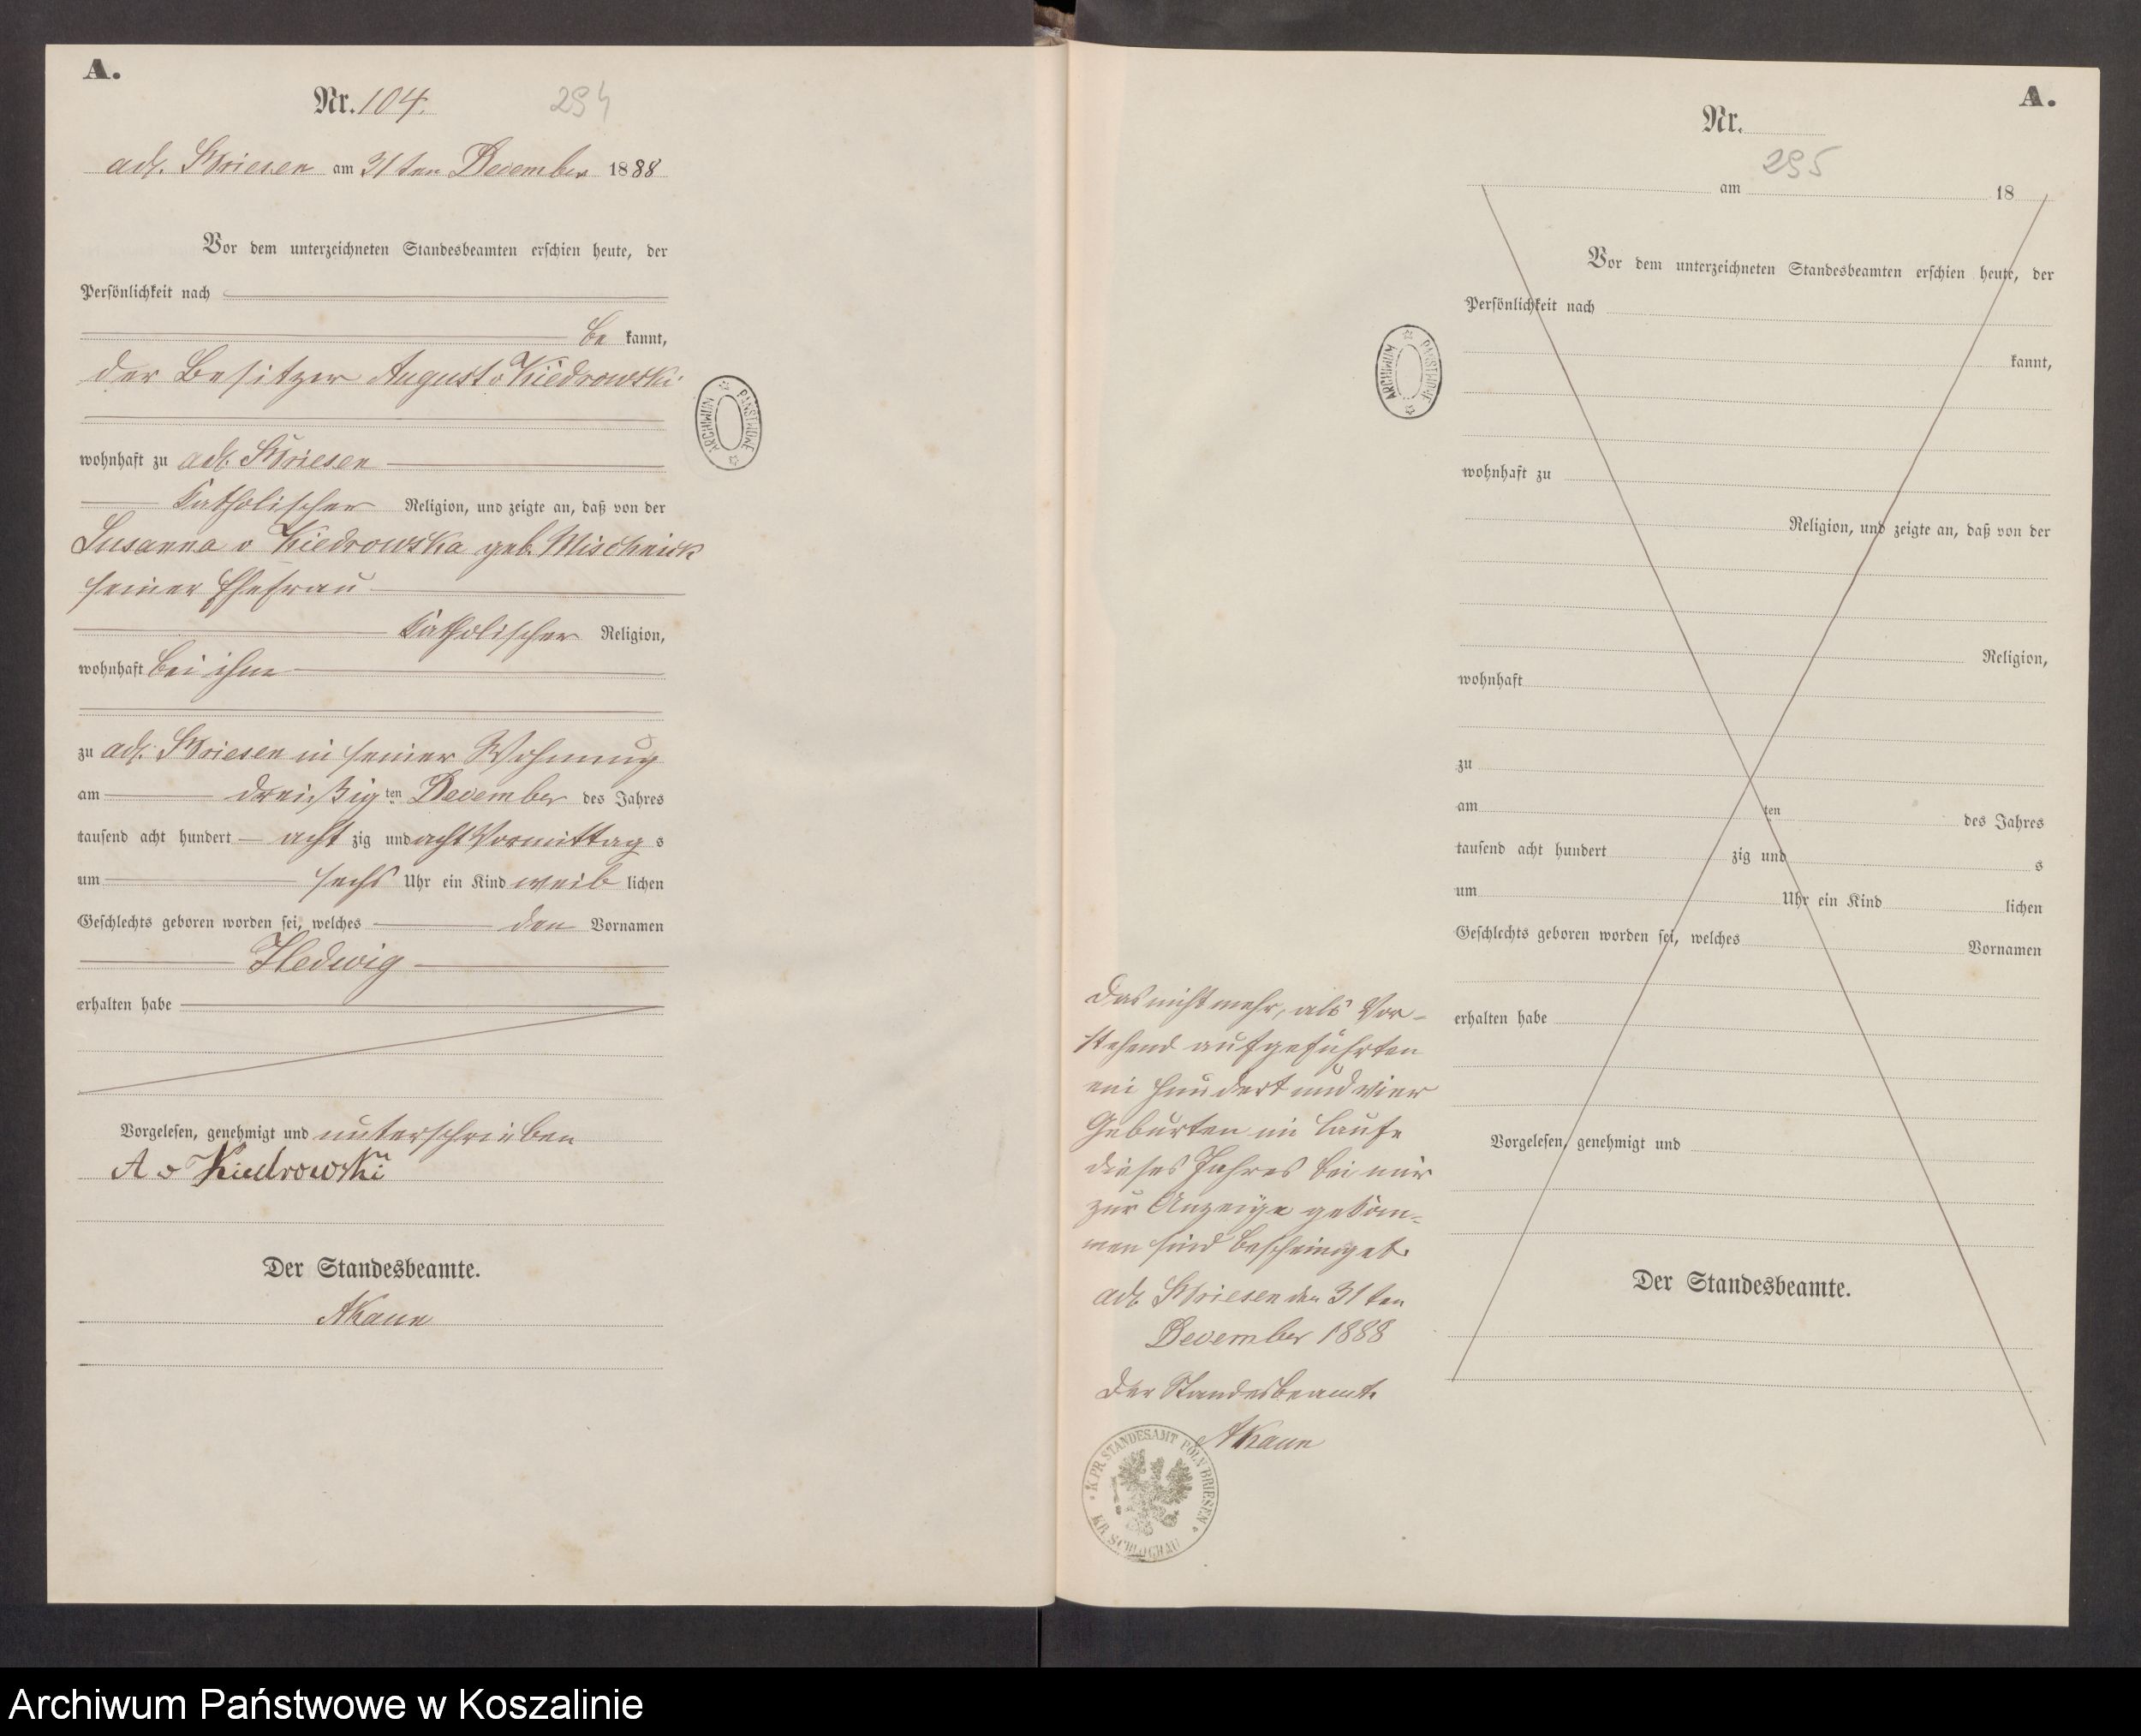 A.
Nr. 104.
294
adl. Briesen am 31ten December 1888
Vor dem unterzeichneten Standesbeamten erschien heute, der
Persönlichkeit nach
be kannt,
der Besitzer August v Kiedrowski
wohnhaft zu adl. Briesen
katholischer Religion, und zeigte an, daß von der
Susanna v Kiedrowska geb. Mischnick
seiner Ehefrau
katholischer Religion,
wohnhaft bei ihm
zu adl. Briesen in seiner Wohnung
am dreißig ten December des Jahres
tausend acht hundert acht zig und acht Vormittag s
um sechs Uhr ein Kind weib lichen
Geschlechts geboren worden sei, welches den Vornamen
Hedwig
erhalten habe
Vorgelesen, genehmigt und unterschrieben
A v Kiedrowski
Der Standesbeamte.
ARCHIWUM PAŃSTWOWE
A.
Nr.
295
am 18
Vor dem unterzeichneten Standesbeamten erschien heute, der
Persönlichkeit nach
kannt,
wohnhaft zu
Religion, und zeigte an, daß von der
Religion,
wohnhaft
zu
am ten des Jahres
tausend acht hundert zig und s
um Uhr ein Kind lichen
Geschlechts geboren worden sei, welches Vornamen
erhalten habe
Vorgelesen, genehmigt und
Der Standesbeamte.
ARCHIWUM PAŃSTWOWE
Das nicht mehr, als Vor-
stehend aufgeführten
ein hundert und vier
Geburten im Laufe
dieses Jahres bei mir
zur Anzeige gekom-
men sind bescheiniget.
adl. Briesen den 31ten
December 1888
Der Standesbeamte
K. PR. STANDESAMT POLN BRIESEN
KR. SCHLOCHAU
Archiwum Państwowe w Koszalinie